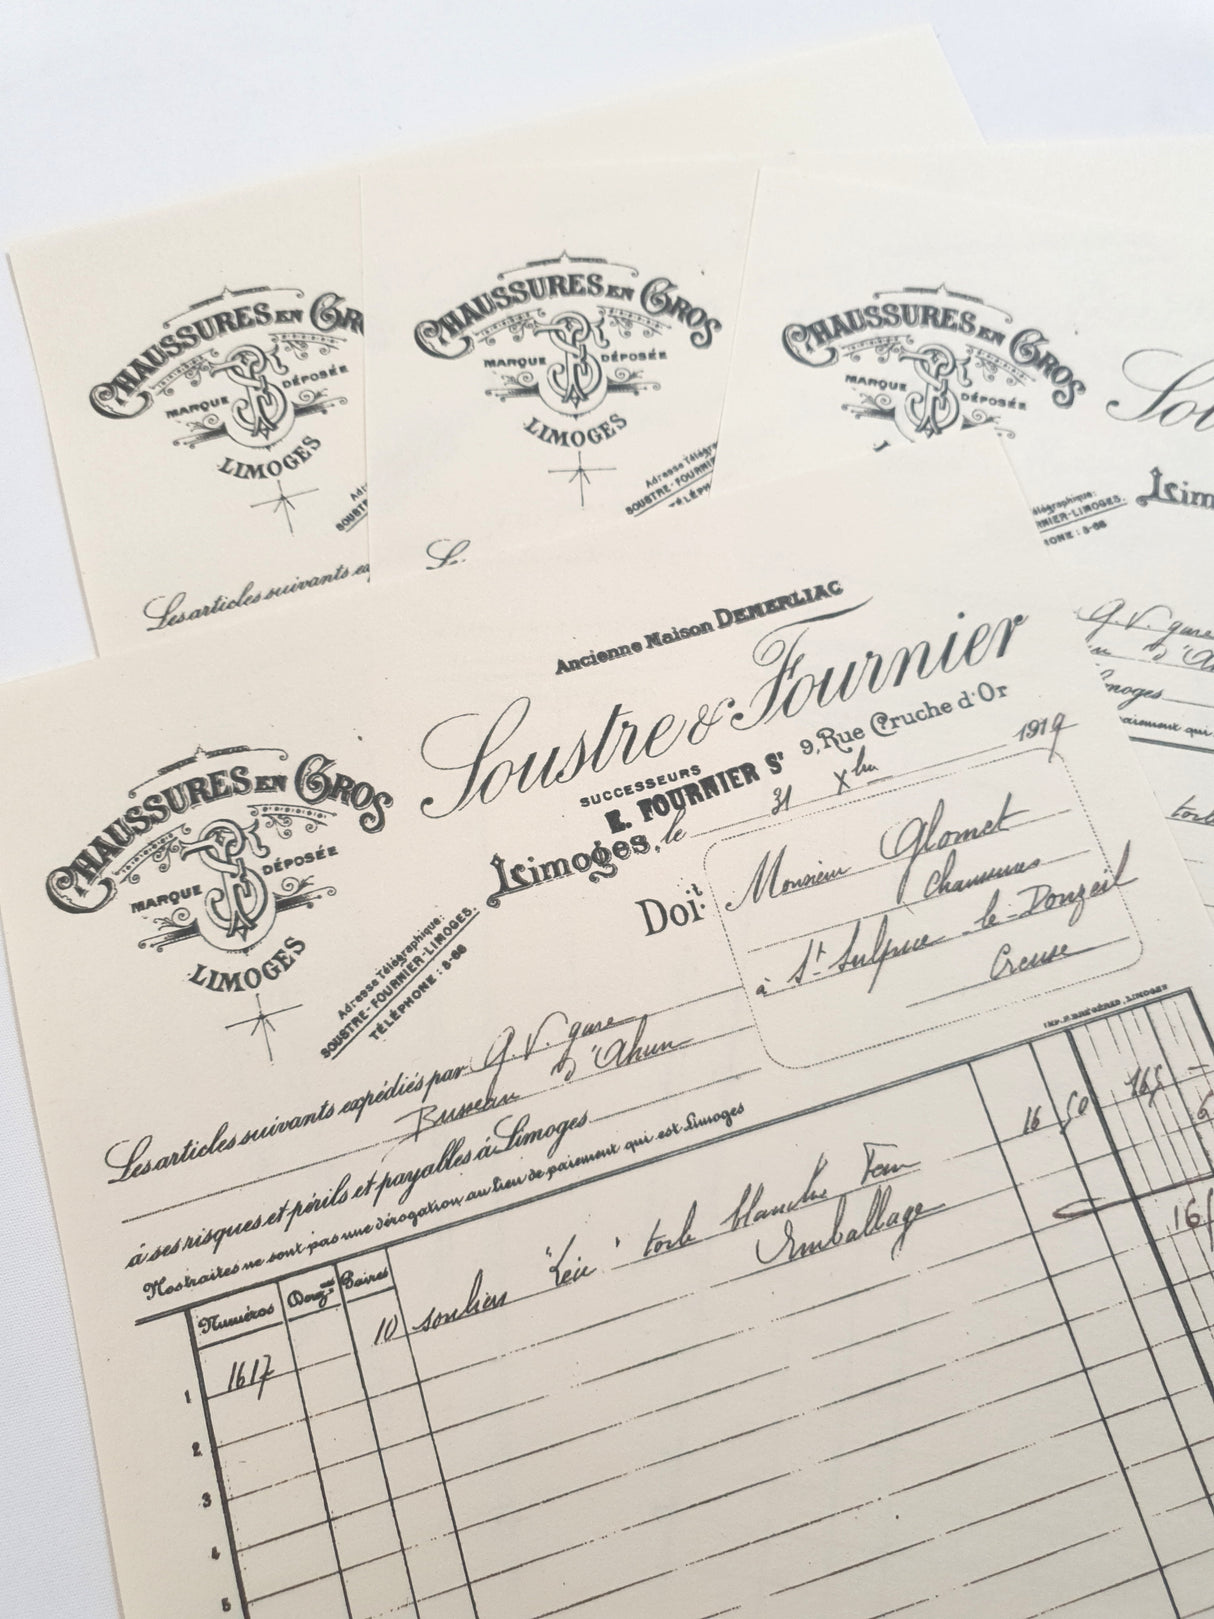 CHAUSSURES EN GR
MARQUE DÉPOSÉE
LIMOGES
SOUST
Les articles suivants ex
CHAUSSURES EN GROS
MARQUE DÉPOSÉE
LIMOGES
Adresse Télégra
SOUSTRE-FOURNIE
TÉLÉPH
CHAUSSURES EN GROS
MARQUE DÉPOSÉE
élégraphique:
RNIER-LIMOGES.
ONE: 8-66
Lim
G.V. gare
imoges
aiement qui
Ancienne Maison DEMERLIAC
Soustre & Fournier
9, Rue Cruche d'Or
SUCCESSEURS
E. FOURNIER Sr
CHAUSSURES EN GROS
MARQUE DÉPOSÉE
LIMOGES
Limoges, le 31 Xbre 1919
Adresse Télégraphique:
SOUSTRE-FOURNIER-LIMOGES.
TÉLÉPHONE: 8-66
Doit Monsieur Glomet
Chaussures
à St Sulpice-le-Donzeil
Creuse
Les articles suivants expédiés par G.V. gare
Busseau d'Ahun
à ses risques et périls et payables à Limoges
Nos traites ne sont pas une dérogation au lieu de paiement qui est Limoges
LIMOGES
Numéros Douz.nes Paires
1 1617 10 toile blanche 16 50 165 -
Emballage
2
3
4
5